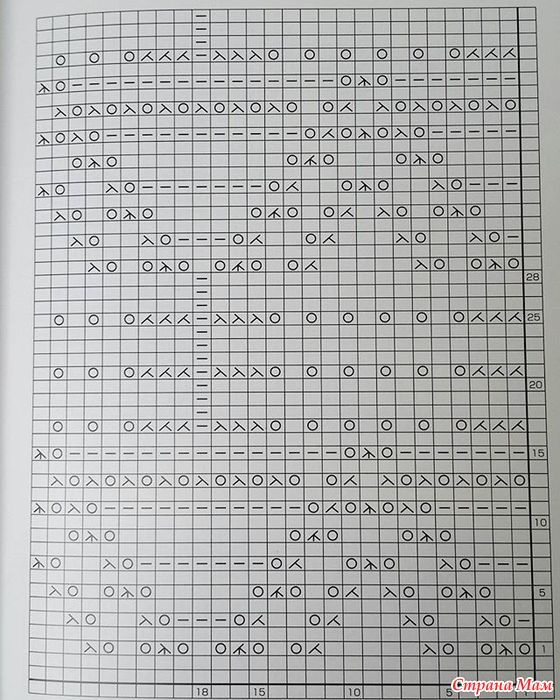 28
25
20
15
10
5
1
18 15 10 5 1
Страна Мам